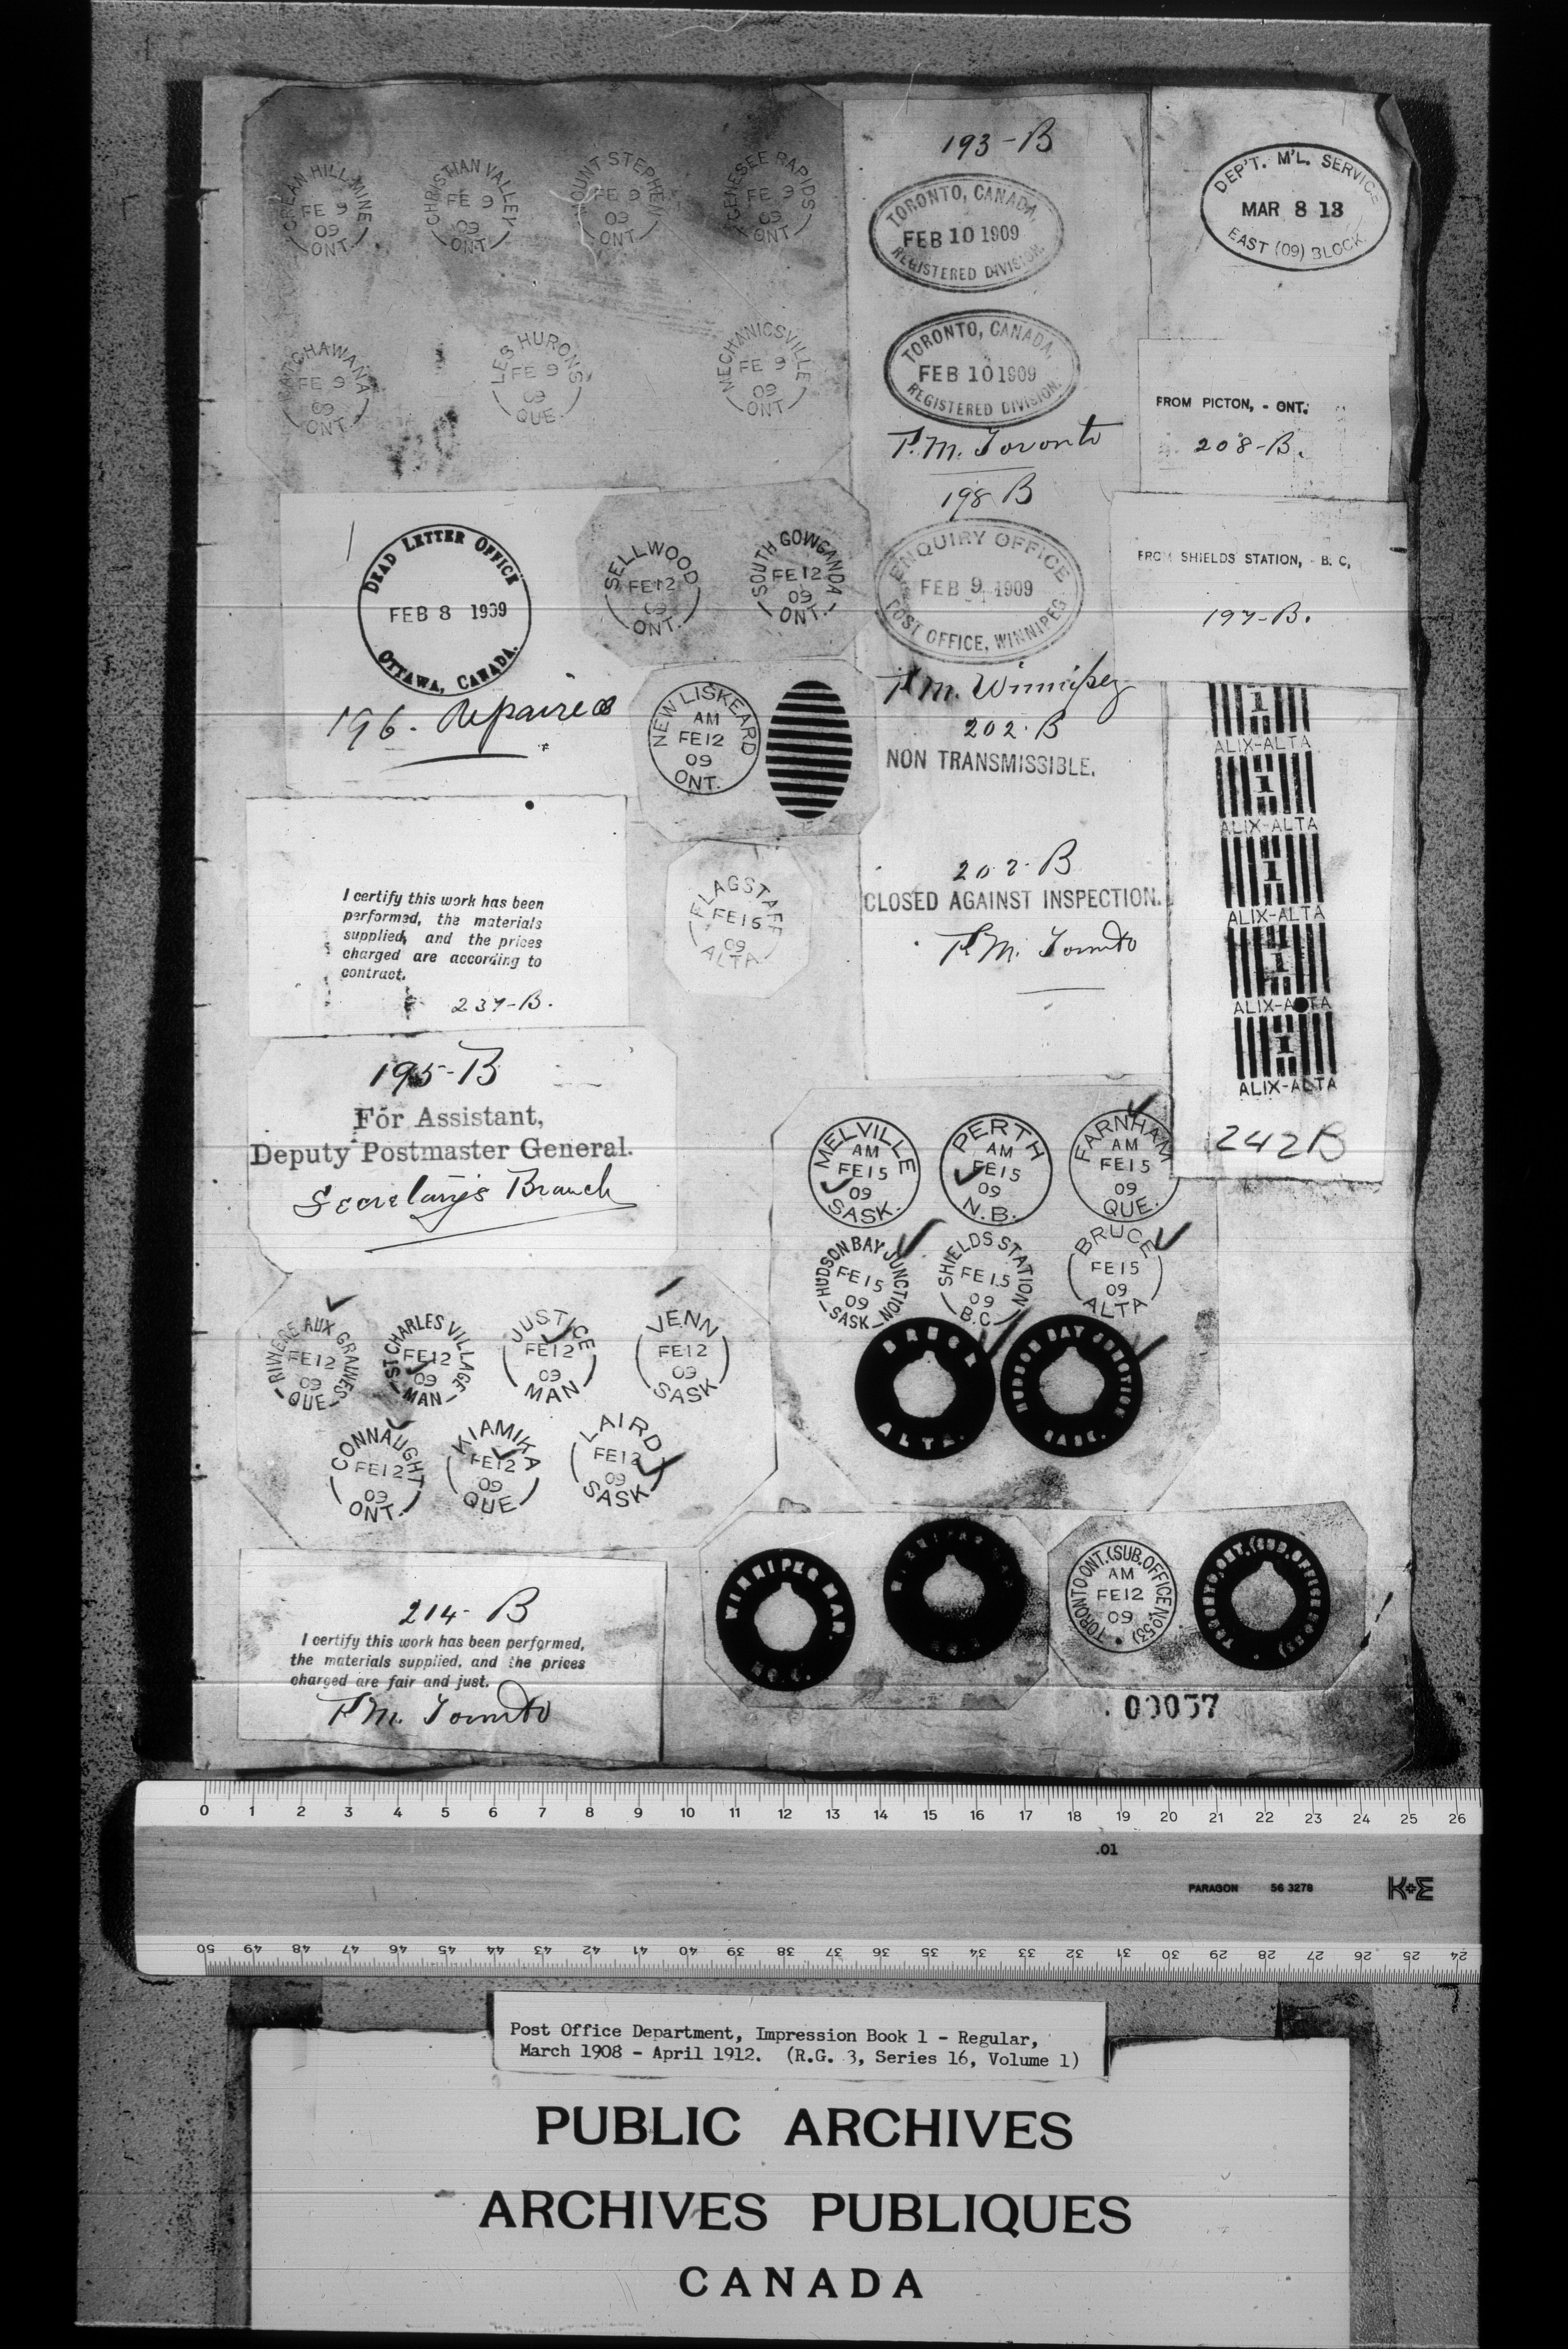 HILL MINE
FE 9
09
ONT.
CHRISTIAN VALLEY
FE 9
09
ONT.
MOUNT STEPHEN
FE 9
09
ONT.
GENESEE RAPIDS
FE 9
09
ONT.
FE 9
09
ONT.
LES HURONS
FE 9
09
QUE.
MECHANICSVILLE
FE 9
09
ONT.
193-B
TORONTO, CANADA,
FEB 10 1909
REGISTERED DIVISION.
TORONTO, CANADA,
FEB 10 1909
REGISTERED DIVISION.
P.M. Toronto
DEP'T. M'L. SERVICE
MAR 8 13
EAST (09) BLOCK.
FROM PICTON, - ONT.
208-B.
DEAD LETTER OFFICE
FEB 8 1909
OTTAWA, CANADA.
196. Repaired
SELLWOOD
FE12
09
ONT.
SOUTH GOWGANDA
FE12
09
ONT.
198 B
ENQUIRY OFFICE
FEB 9 1909
POST OFFICE, WINNIPEG
P.M. Winnipeg
FROM SHIELDS STATION, - B. C,
197-B.
NEW LISKEARD
AM
FE12
09
ONT.
202.B
NON TRANSMISSIBLE.
202-B
CLOSED AGAINST INSPECTION.
P.M. Toronto
1
ALIX-ALTA
1
ALIX-ALTA
1
ALIX-ALTA
1
ALIX-ALTA
1
ALIX-ALTA
242B
I certify this work has been
performed, the materials
supplied, and the prices
charged are according to
contract.
237-B.
FLAGSTAFF
FE15
09
ALTA
195-B
For Assistant,
Deputy Postmaster General.
Secretary's Branch
MELVILLE
AM
FE15
09
SASK.
PERTH
AM
FE15
09
N.B.
FARNHAM
AM
FE15
09
QUE.
HUDSON BAY JUNCTION
FE15
09
SASK
SHIELDS STATION
FE15
09
B.C.
BRUCE
FE15
09
ALTA
BRUCE
ALTA.
HUDSON BAY JUNCTION
SASK.
RIVIERE AUX GRAINES
FE12
09
QUE
ST CHARLES VILLAGE
FE12
09
MAN
JUSTICE
FE12
09
MAN
VENN
FE12
09
SASK
CONNAUGHT
FE12
09
ONT.
KIAMIKA
FE12
09
QUE
LAIRD
FE12
09
SASK
214-B
I certify this work has been performed,
the materials supplied, and the prices
charged are fair and just.
P.M. Toronto
WINNIPEG MAN.
TORONTO ONT. (SUB. OFFICE NO. 53)
AM
FE12
09
TORONTO, ONT. (SUB. OFFICE NO. 53)
00057
0 1 2 3 4 5 6 7 8 9 10 11 12 13 14 15 16 17 18 19 20 21 22 23 24 25 26
.01
PARAGON 56 3278 K+E
50 49 48 47 46 45 44 43 42 41 40 39 38 37 36 35 34 33 32 31 30 29 28 27 26 25 24
Post Office Department, Impression Book 1 - Regular,
March 1908 - April 1912. (R.G. 3, Series 16, Volume 1)
PUBLIC ARCHIVES
ARCHIVES PUBLIQUES
CANADA